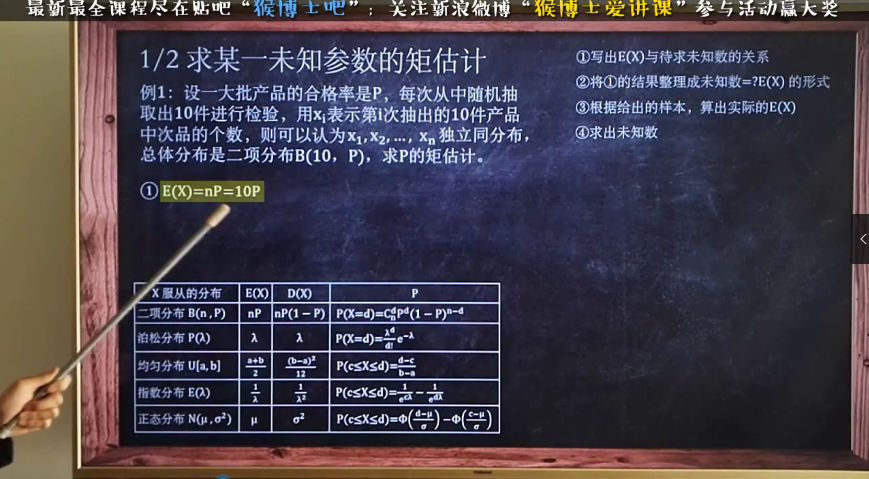 最新最全课程尽在贴吧“猴博士吧”；关注新浪微博“猴博士爱讲课”参与活动赢大奖
1/2 求某一未知参数的矩估计
例1：设一大批产品的合格率是P，每次从中随机抽
取出10件进行检验，用xᵢ表示第i次抽出的10件产品
中次品的个数，则可以认为x₁,x₂,…, xₙ 独立同分布，
总体分布是二项分布B(10，P)，求P的矩估计。
① E(X)=nP=10P
①写出E(X)与待求未知数的关系
②将①的结果整理成未知数=?E(X) 的形式
③根据给出的样本，算出实际的E(X)
④求出未知数
X 服从的分布 E(X) D(X) P
二项分布 B(n , P) nP nP(1 − P) P(X=d)=CₙᵈPᵈ(1 − P)ⁿ⁻ᵈ
泊松分布 P(λ) λ λ P(X=d)=λᵈ/d! e^−λ
均匀分布 U[a, b] a+b/2 (b−a)²/12 P(c≤X≤d)=d−c/b−a
指数分布 E(λ) 1/λ 1/λ² P(c≤X≤d)=1/e^cλ − 1/e^dλ
正态分布 N(μ , σ²) μ σ² P(c≤X≤d)=Φ(d−μ/σ)−Φ(c−μ/σ)